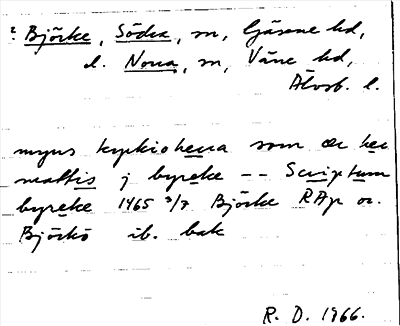 ? Björke, Södra, sn, Gäsene hd,
l. Norra, sn, Väne hd,
Älvsb. l.
myns kyrkioherra som ær her
mattis j byrøke -- Scriptum
byreke 1465 3/7 Björke RAp or.
Björkö ib. bak
R. D. 1966.